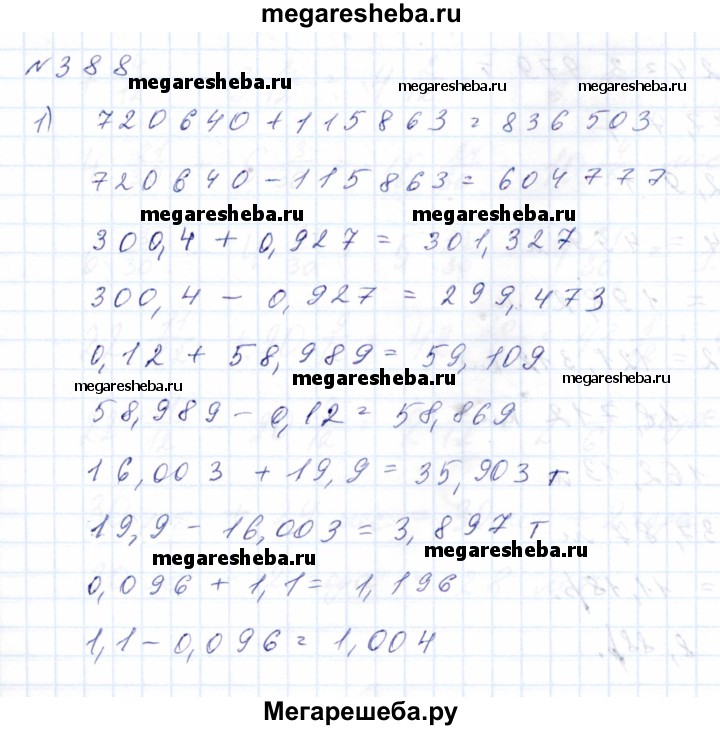 megaresheba.ru
№388
megaresheba.ru megaresheba.ru
1) 720640+115863=836503
720640-115863=604777
megaresheba.ru megaresheba.ru
300,4 + 0,927 = 301,327
300,4 - 0,927 = 299,473
0,12 + 58,989 = 59,109
megaresheba.ru megaresheba.ru megaresheba.ru
58,989 - 0,12 = 58,869
16,003 + 19,9 = 35,903 т
19,9 - 16,003 = 3,897 т
megaresheba.ru megaresheba.ru
0,096 + 1,1 = 1,196
1,1 - 0,096 = 1,004
Мегарешеба.ру